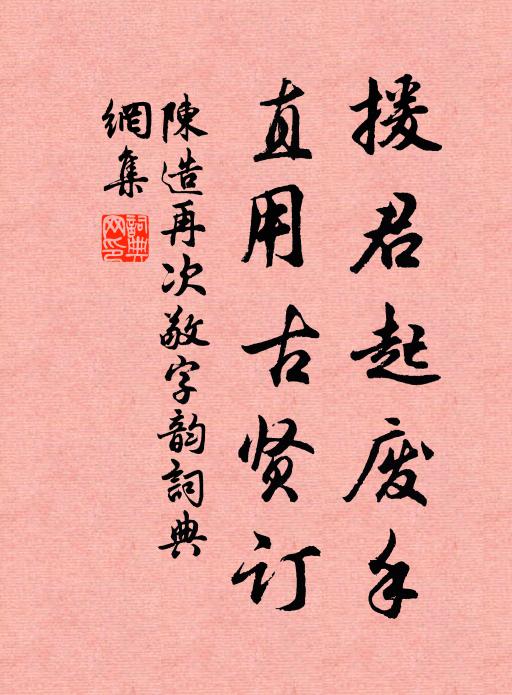 援君起废手
直用古贤订
陳造再次敬字韵詞典
網集
詞典网印